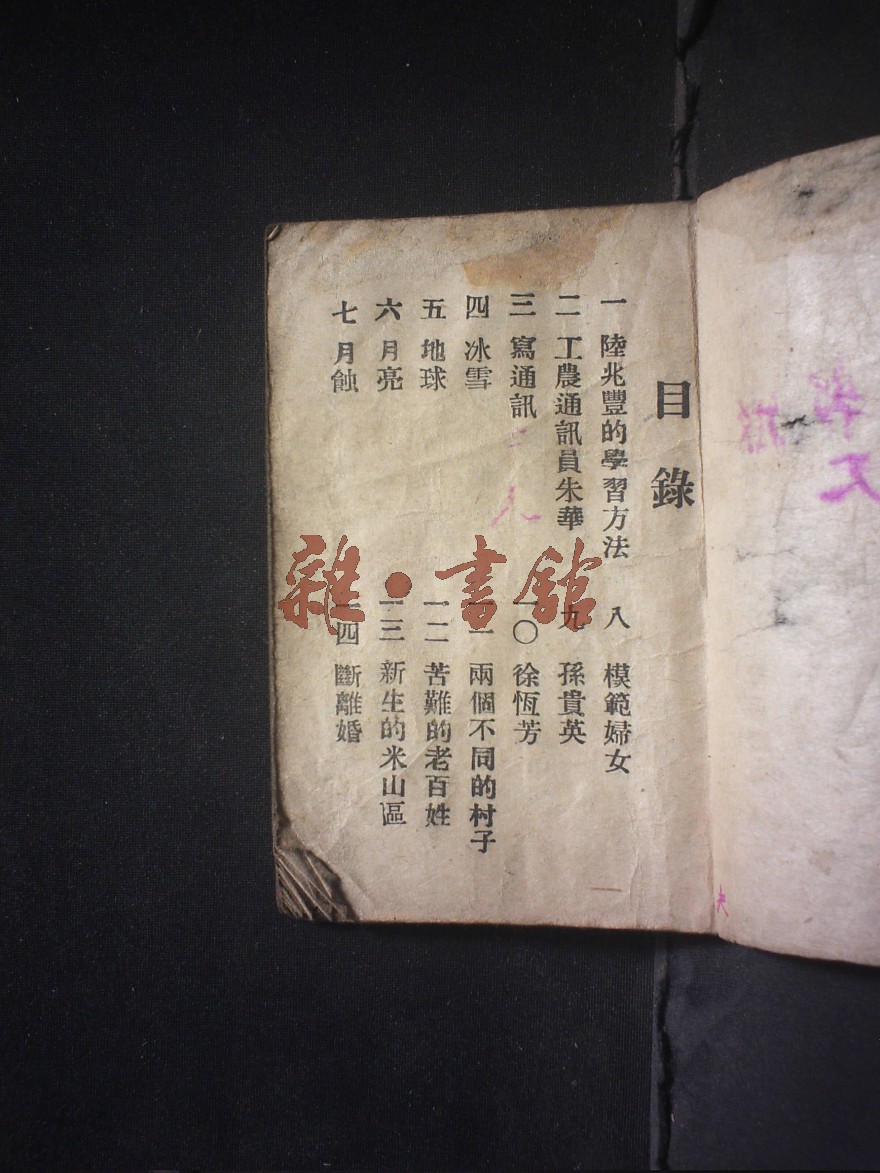 目錄
一 陸兆豐的學習方法
二 工農通訊員朱華
三 寫通訊
四 冰雪
五 地球
六 月亮
七 月蝕
八 模範婦女
九 孫貴英
一〇 徐恆芳
一一 兩個不同的村子
一二 苦難的老百姓
一三 新生的米山區
一四 斷離婚
雜·書館